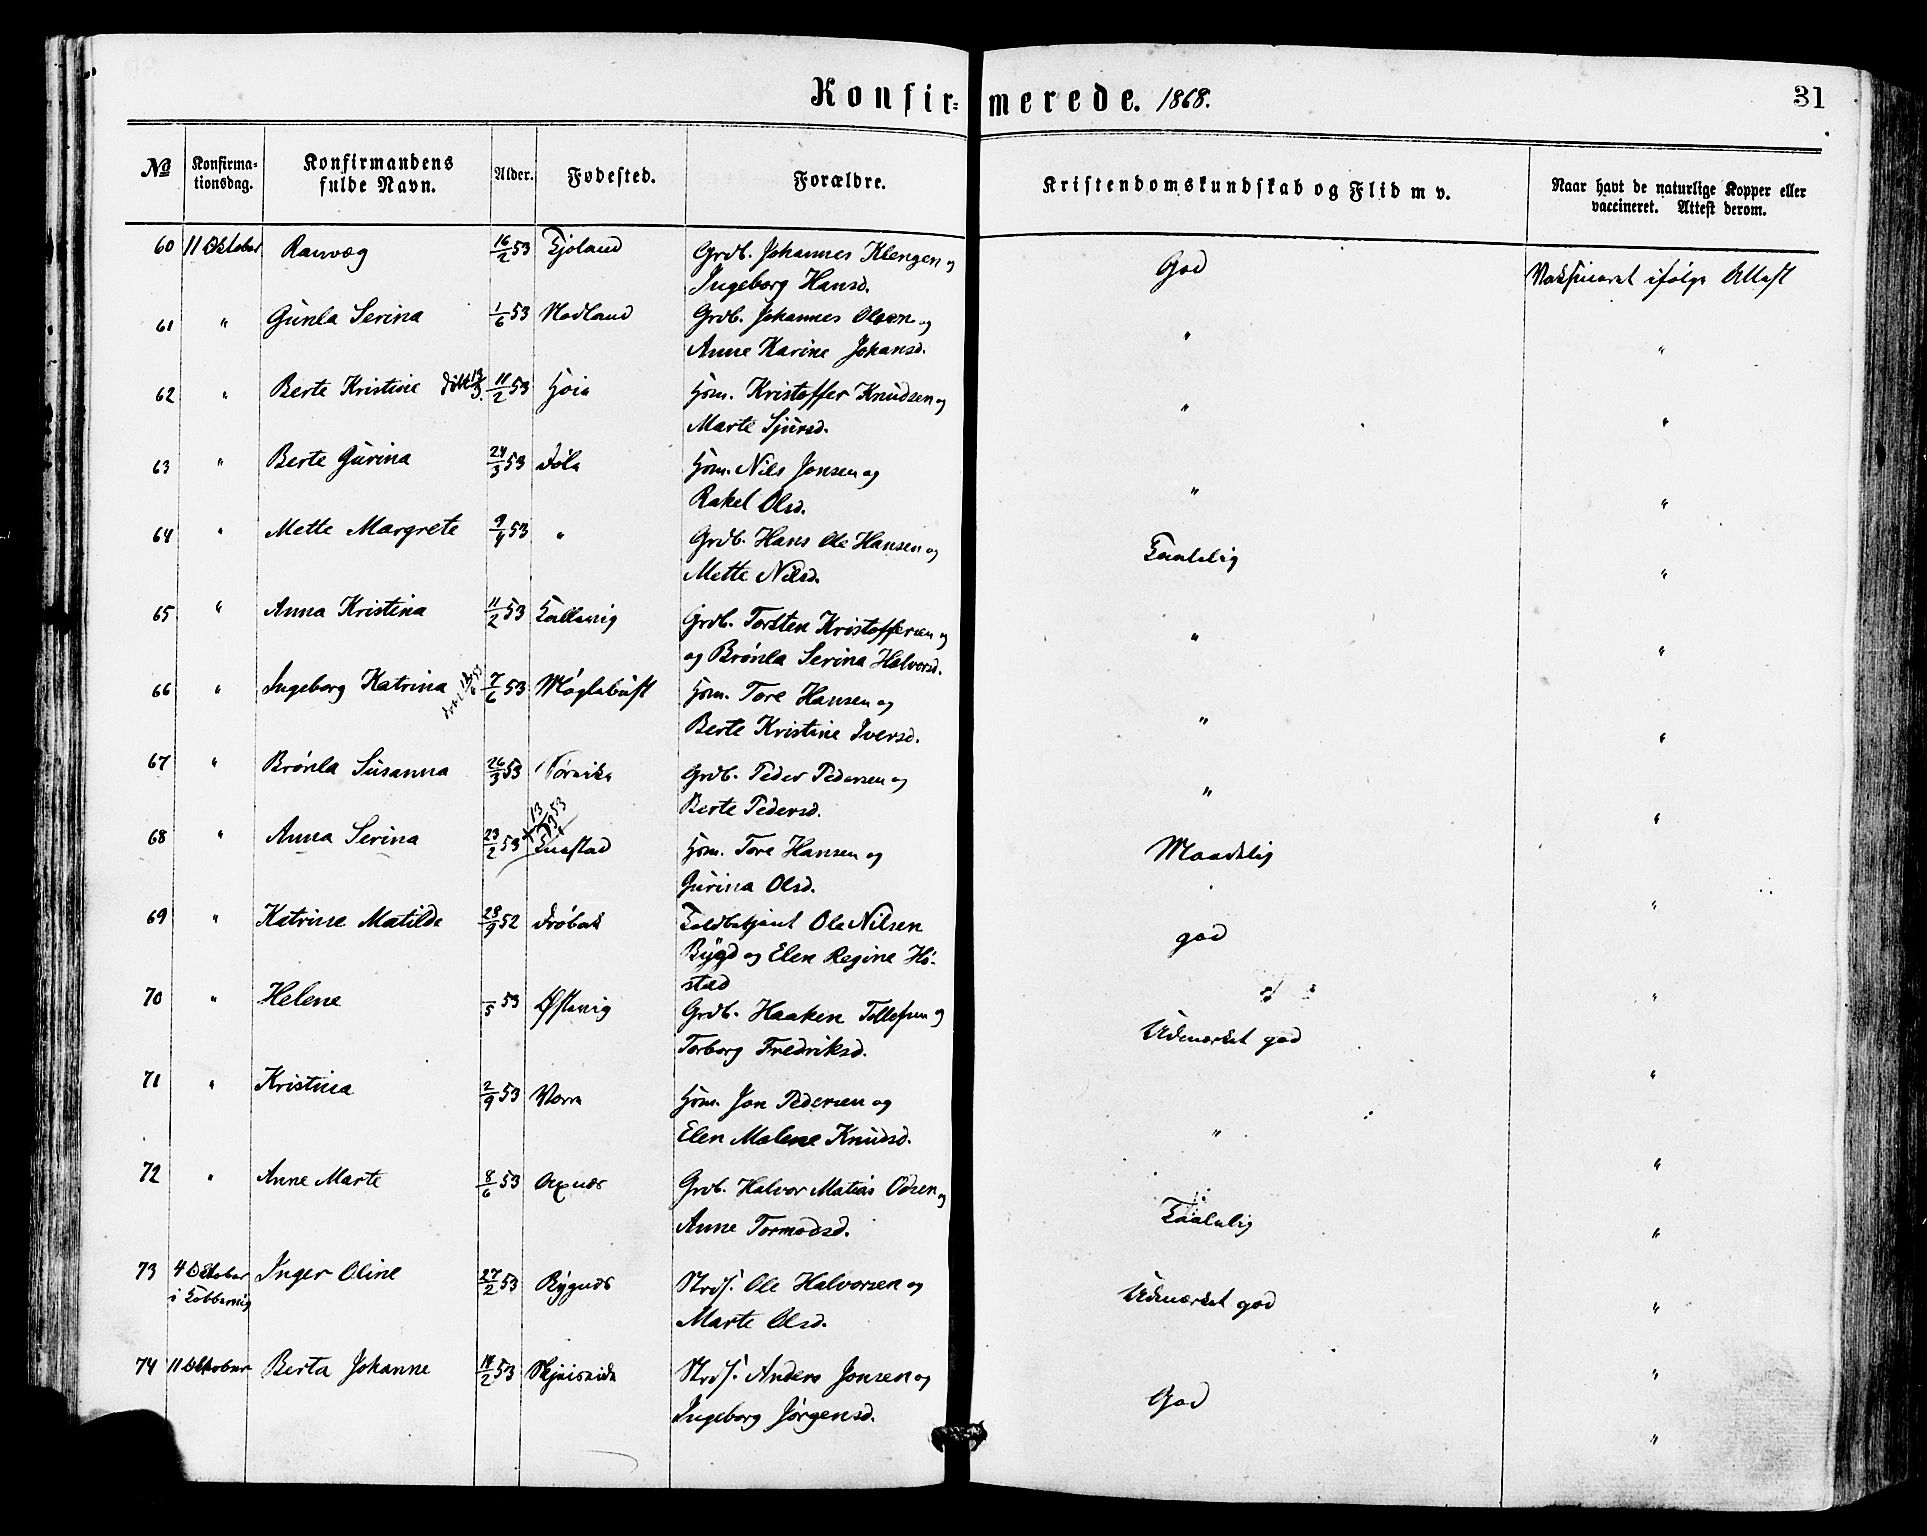 Konfir= merede. 1868. 31
No Konfirma- tionsdag. Konfirmandens fulde Navn. Alder. Fødested. Forældre. Kristendomskundskab og Flid m v. Naar havt de naturlige Kopper eller vaccineret. Attest derom.
60 11 Oktober Ranvæg 16/2 53 Gjoland Grdb. Johannes Klengen og God Vaksineret ifølge Attest
Ingeborg Hansd.
61 " Gunla Serina 1/6 53 Nodland Grdb. Johannes Olsen og " "
Anne Karine Johansd.
62 " Berte Kristine 11/2 53 Hoia Hsm. Kristoffer Knudsen og " "
Marte Sjursd.
63 " Berte Gurina 24/3 53 Hsm. Nils Jonsen og " "
Rakel Olsd.
64 " Mette Margrete 9/4 53 " Grdb. Hans Ole Hansen og Taalelig "
Mette Nilsd.
65 " Anna Kristina 11/2 53 Tallevig Grdb. Torsten Kristoffersen og " "
og Brønla Serina Halvorsd.
66 " Ingeborg Katrina 7/6 53 Møglebust Hsm. Tore Hansen og " "
Berte Kristine Iversd.
67 " Brønla Susanna 26/3 53 Grdb. Peder Pedersen og " "
Berte Pedersd.
68 " Anna Serina 23/2 53 Hsm. Tore Hansen og Maadelig "
Gurina Olsd.
69 " Katrine Matilde 28/9 52 Drøbak Toldbetjent Ole Nilsen god "
Bygd og Elen Regine Hø-
stad
70 " Helene /5 53 Østevig Grdb. Haaken Tollefsen og Udmærket god "
Torborg Fredriksd.
71 " Kristina 2/9 53 Vorre Hsm. Jon Pedersen og " "
Elen Malene Knudsd.
72 " Anne Marte 8/6 53 Axnes Grdb. Halvor Matias Odsen og Taalelig "
Anne Tormodsd.
73 4 Oktober Inger Oline 27/2 53 Rygnes Strds. Ole Halvorsen og Udmærket god "
i Kobbervig Marte Olsd.
74 11 Oktober Berta Johanne 14/2 53 Strds. Anders Jonsen og God "
Ingeborg Jørgensd.
"